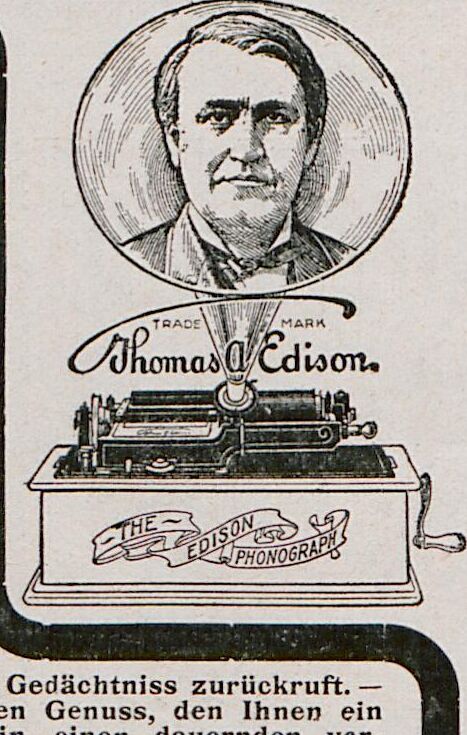 TRADE MARK
Thomas A Edison.
THE
EDISON
PHONOGRAPH
Gedächtniss zurückruft. —
en Genuss, den Ihnen ein
in einen dauernden ver-